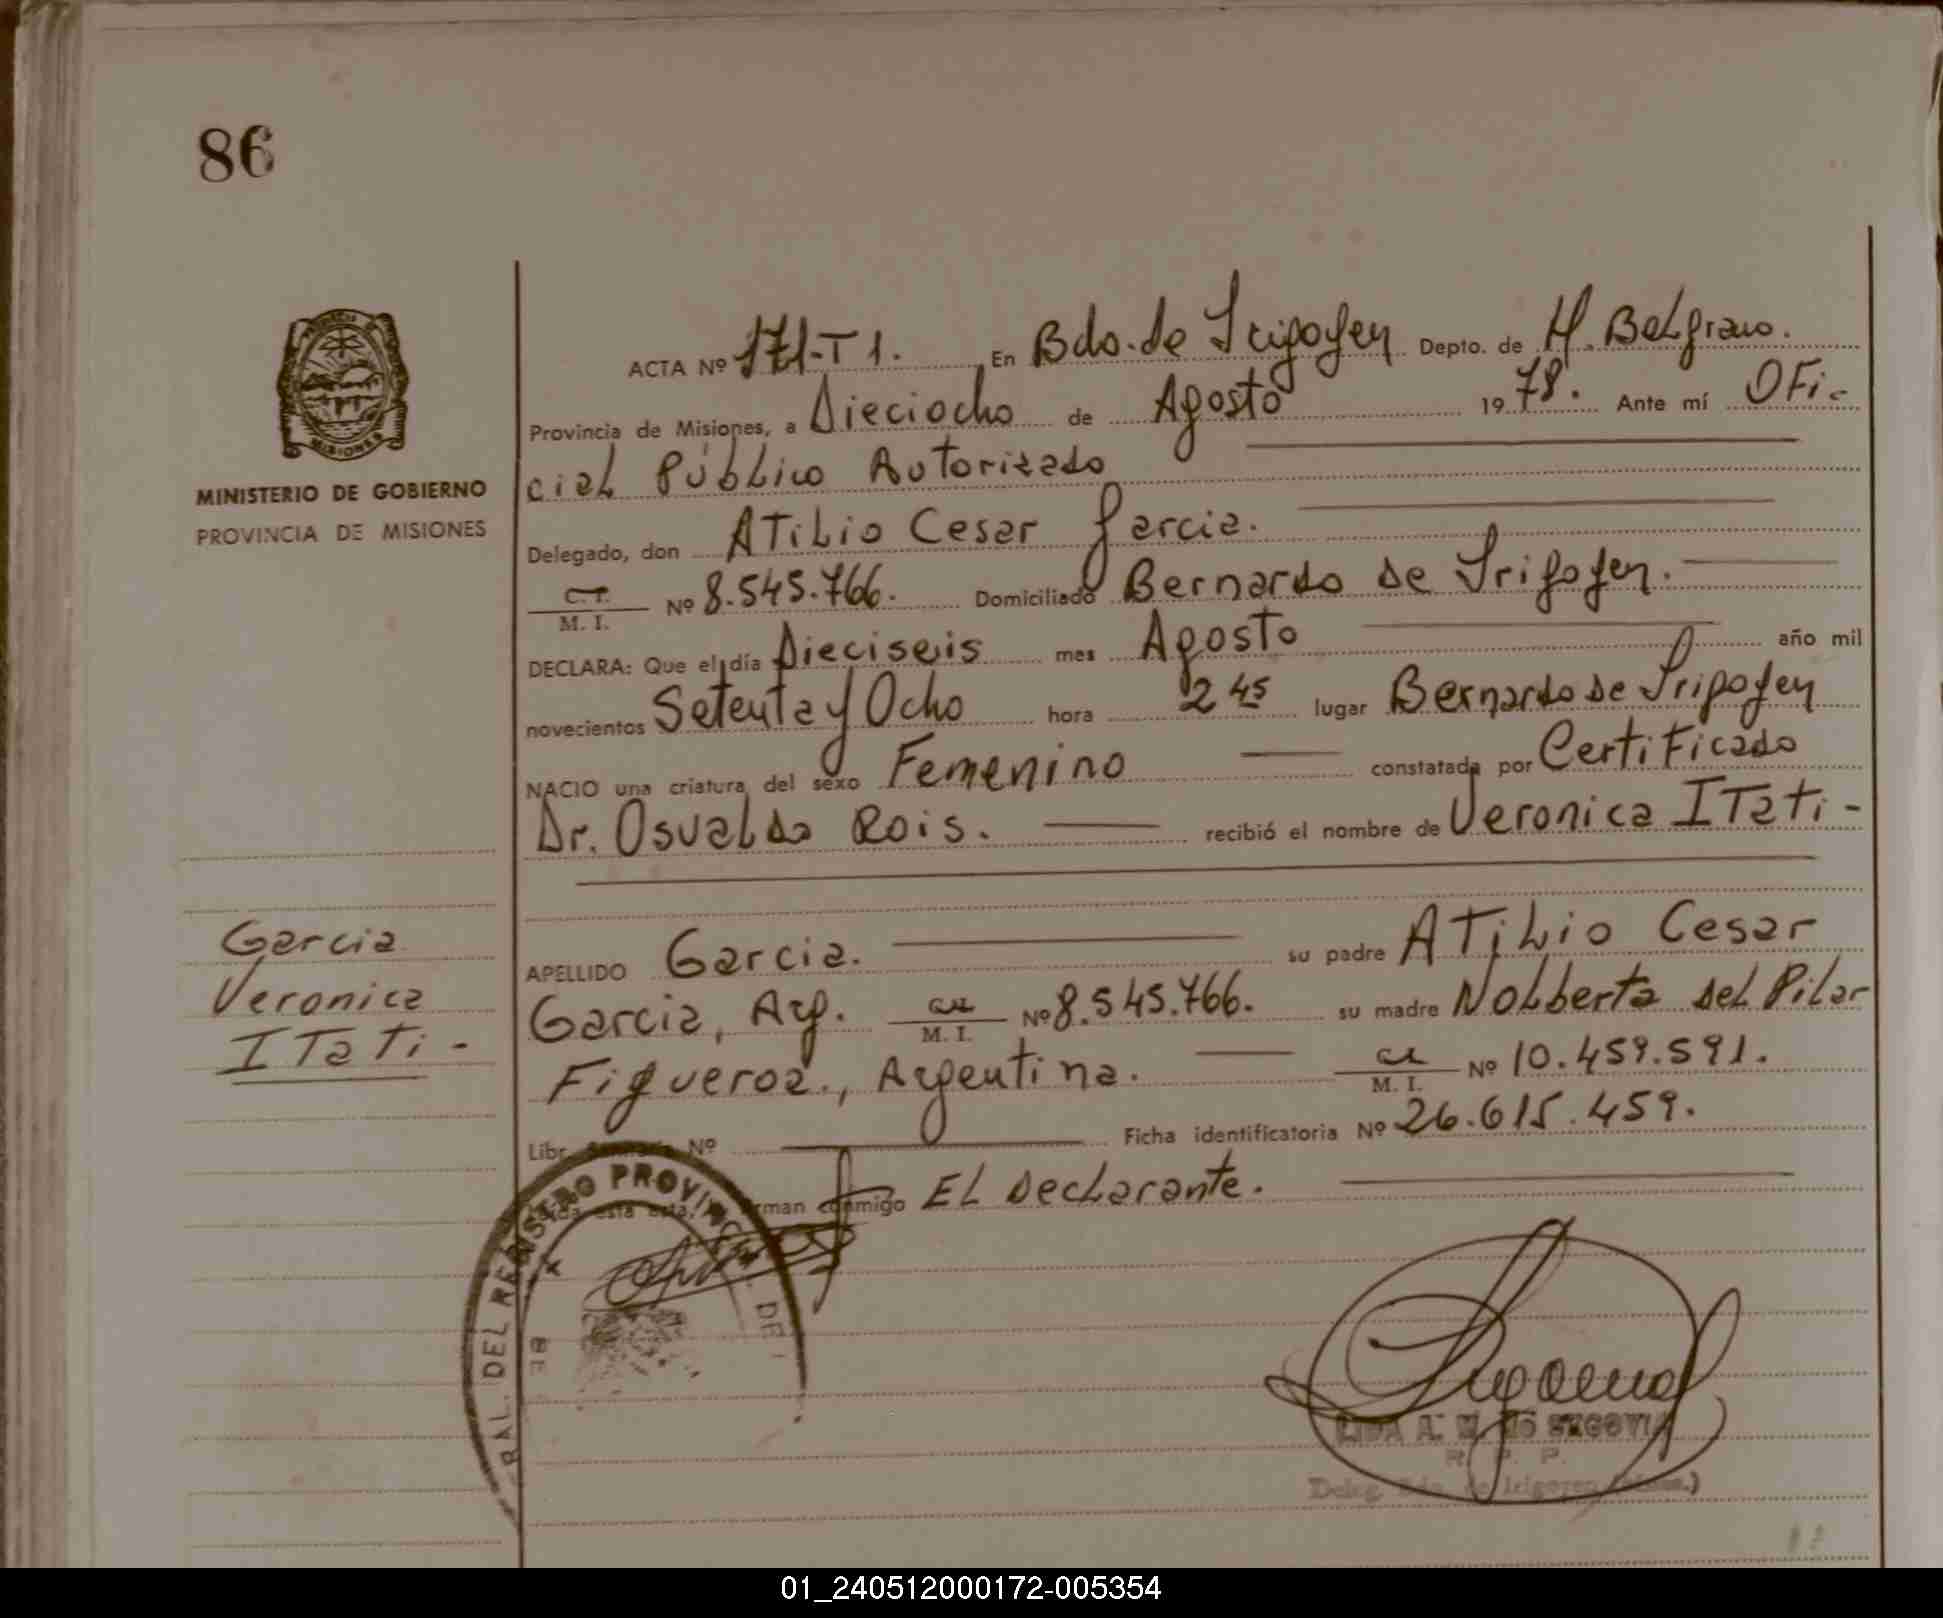 86
ACTA Nº 171-T1. En Bdo. de Irigoyen Depto. de M. Belgrano.
Provincia de Misiones, a Dieciocho de Agosto 1978. Ante mí Ofi-
cial Público Autorizado
MINISTERIO DE GOBIERNO
PROVINCIA DE MISIONES
Delegado, don Atilio Cesar Garcia.
M. I. Nº 8.545.766. Domiciliado Bernardo de Irigoyen.
DECLARA: Que el día Dieciseis mes Agosto año mil
novecientos Setenta y Ocho hora 2 45 lugar Bernardo de Irigoyen
NACIO una criatura del sexo Femenino constatada por Certificado
Dr. Osvaldo Rois. recibió el nombre de Veronica Itati-
Garcia
Veronica
Itati-
APELLIDO Garcia. su padre Atilio Cesar
Garcia, Arg. M. I. Nº 8.545.766. su madre Nolberta del Pilar
Figueroa., Argentina. M. I. Nº 10.459.591.
Nº Ficha identificatoria Nº 26.615.459.
conmigo El Declarante.
RAL. DEL REGISTRO PROVINC. DE
LIDA A. M. DE SEGOVIA
R. P. P.
Deleg. Bdo. de Irigoyen
01_240512000172-005354